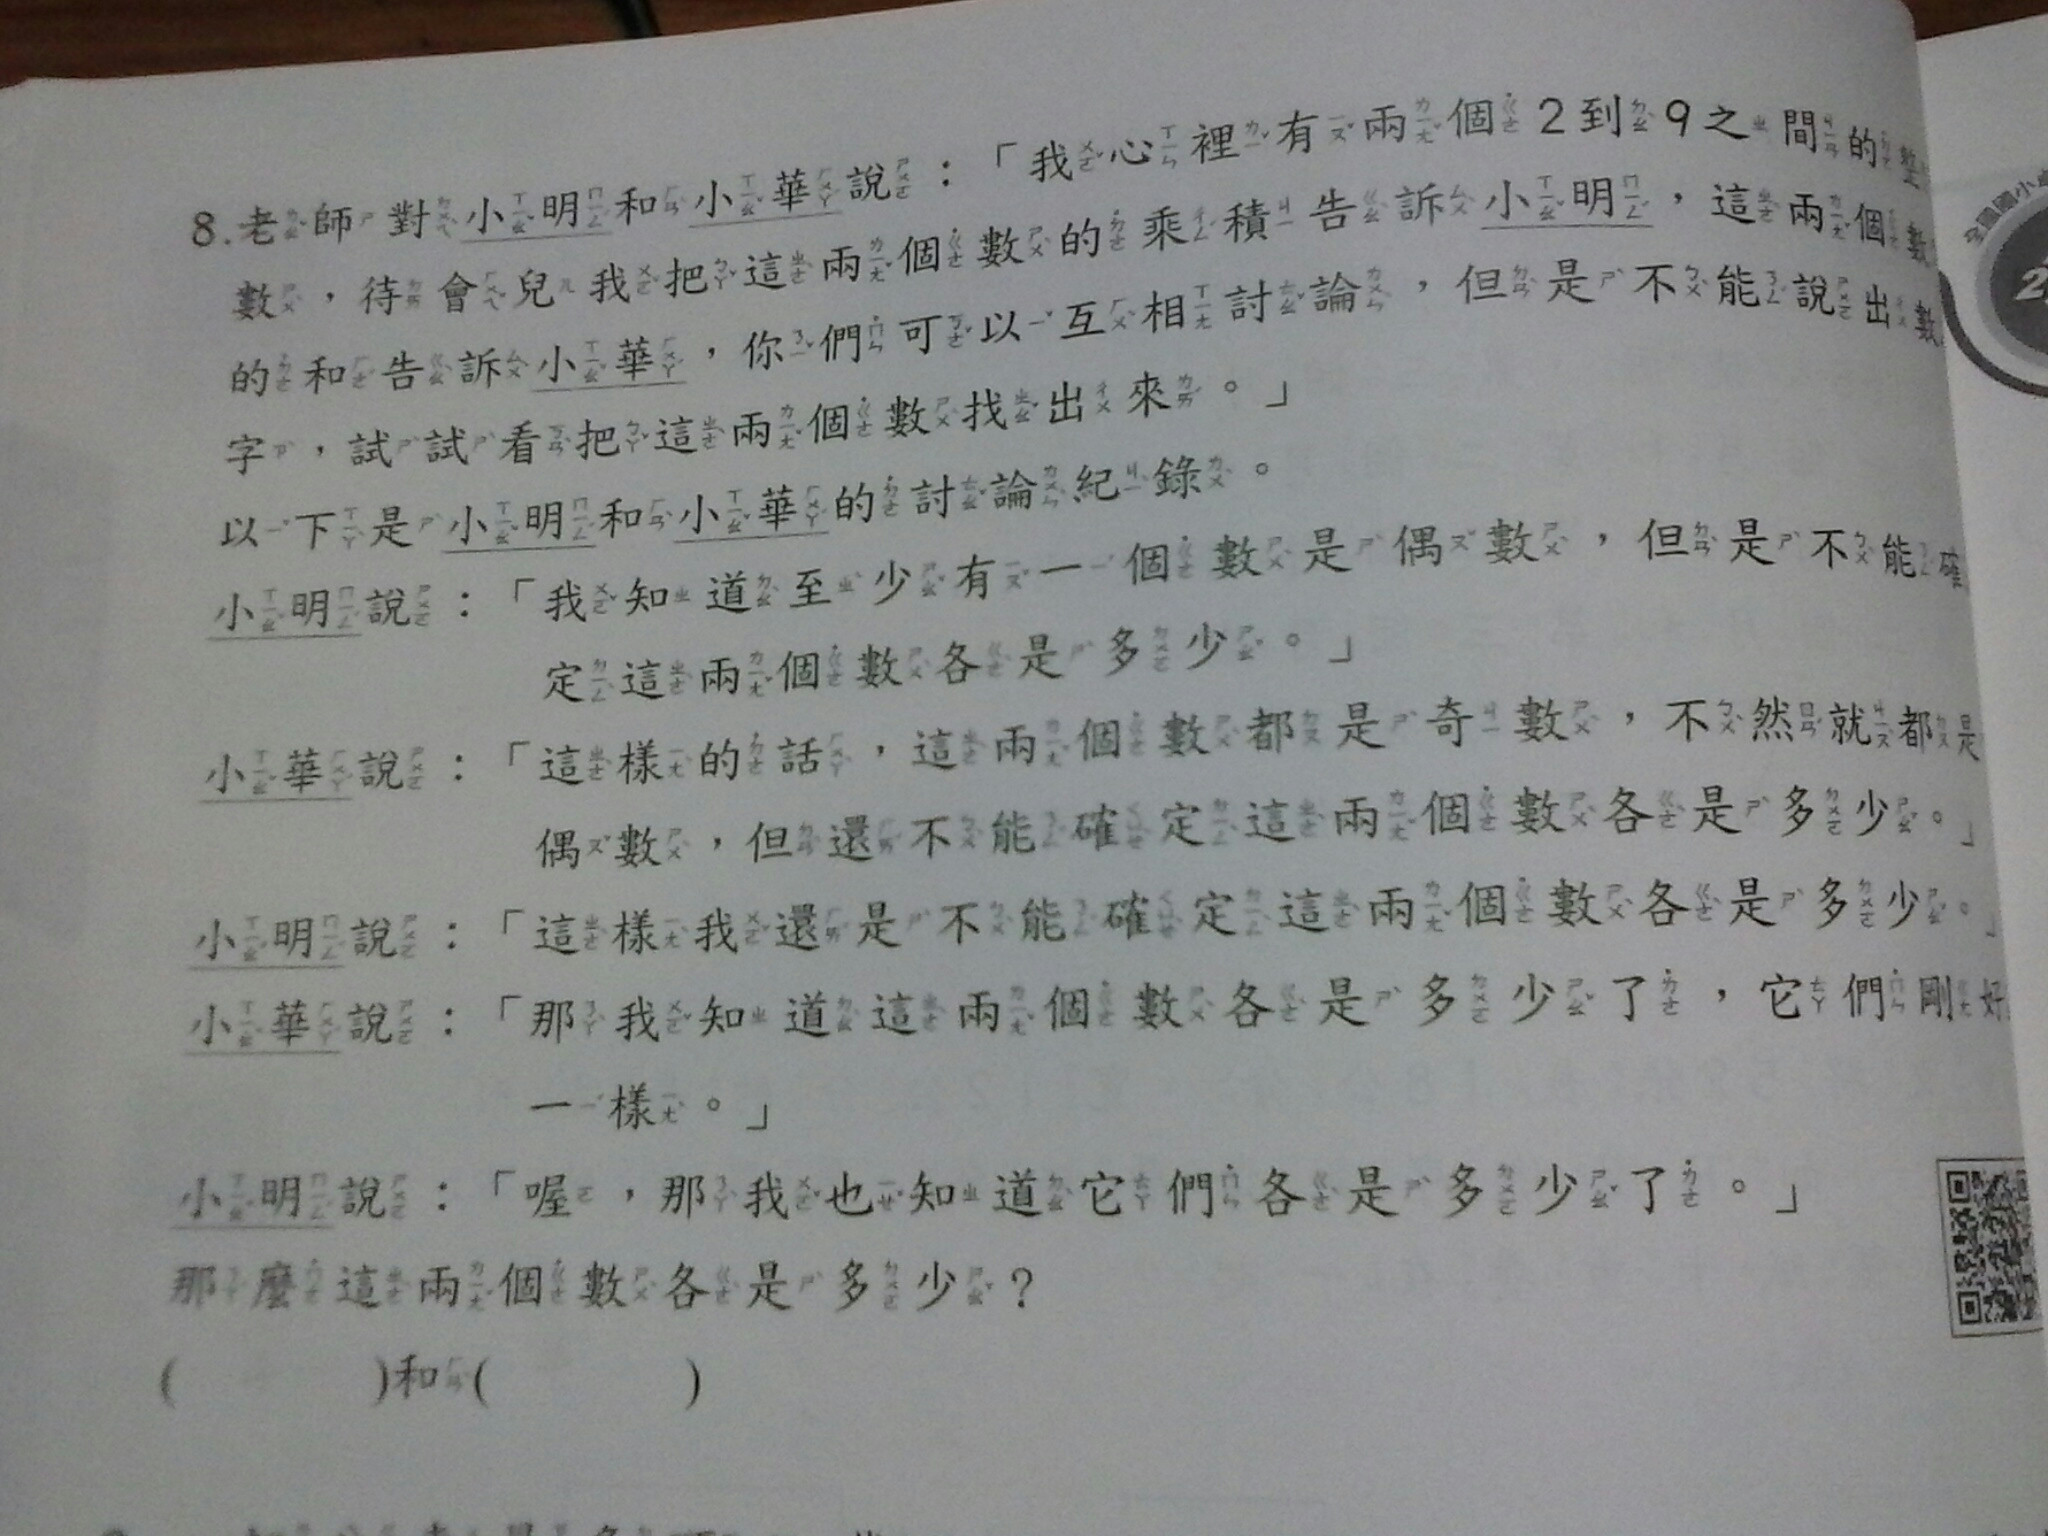 8.老師對小明和小華說：「我心裡有兩個2到9之間的整
數，待會兒我把這兩個數的乘積告訴小明，這兩個數
的和告訴小華，你們可以互相討論，但是不能說出數
字，試試看把這兩個數找出來。」
以下是小明和小華的討論紀錄。
小明說：「我知道至少有一個數是偶數，但是不能確
定這兩個數各是多少。」
小華說：「這樣的話，這兩個數都是奇數，不然就都是
偶數，但還不能確定這兩個數各是多少。」
小明說：「這樣我還是不能確定這兩個數各是多少。」
小華說：「那我知道這兩個數各是多少了，它們剛好
一樣。」
小明說：「喔，那我也知道它們各是多少了。」
那麼這兩個數各是多少？
( )和( )